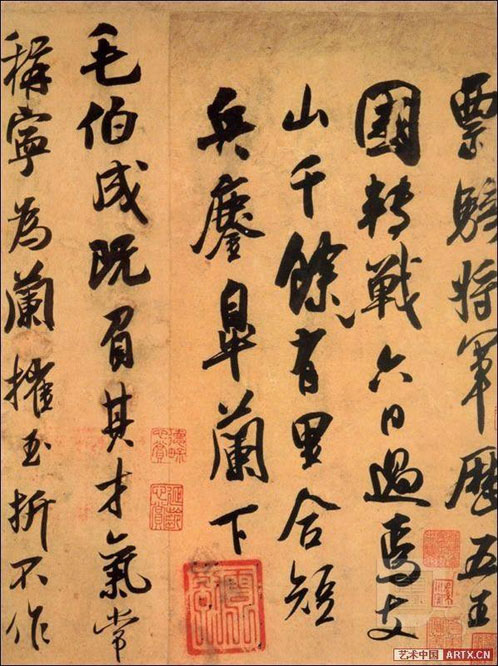 票騎将軍歷五王
國轉戰六日過焉支
山千餘有里合短
兵鏖皋蘭下
毛伯成既負其才氣常
稱寧為蘭摧玉折不作
艺术中国 ARTX.CN